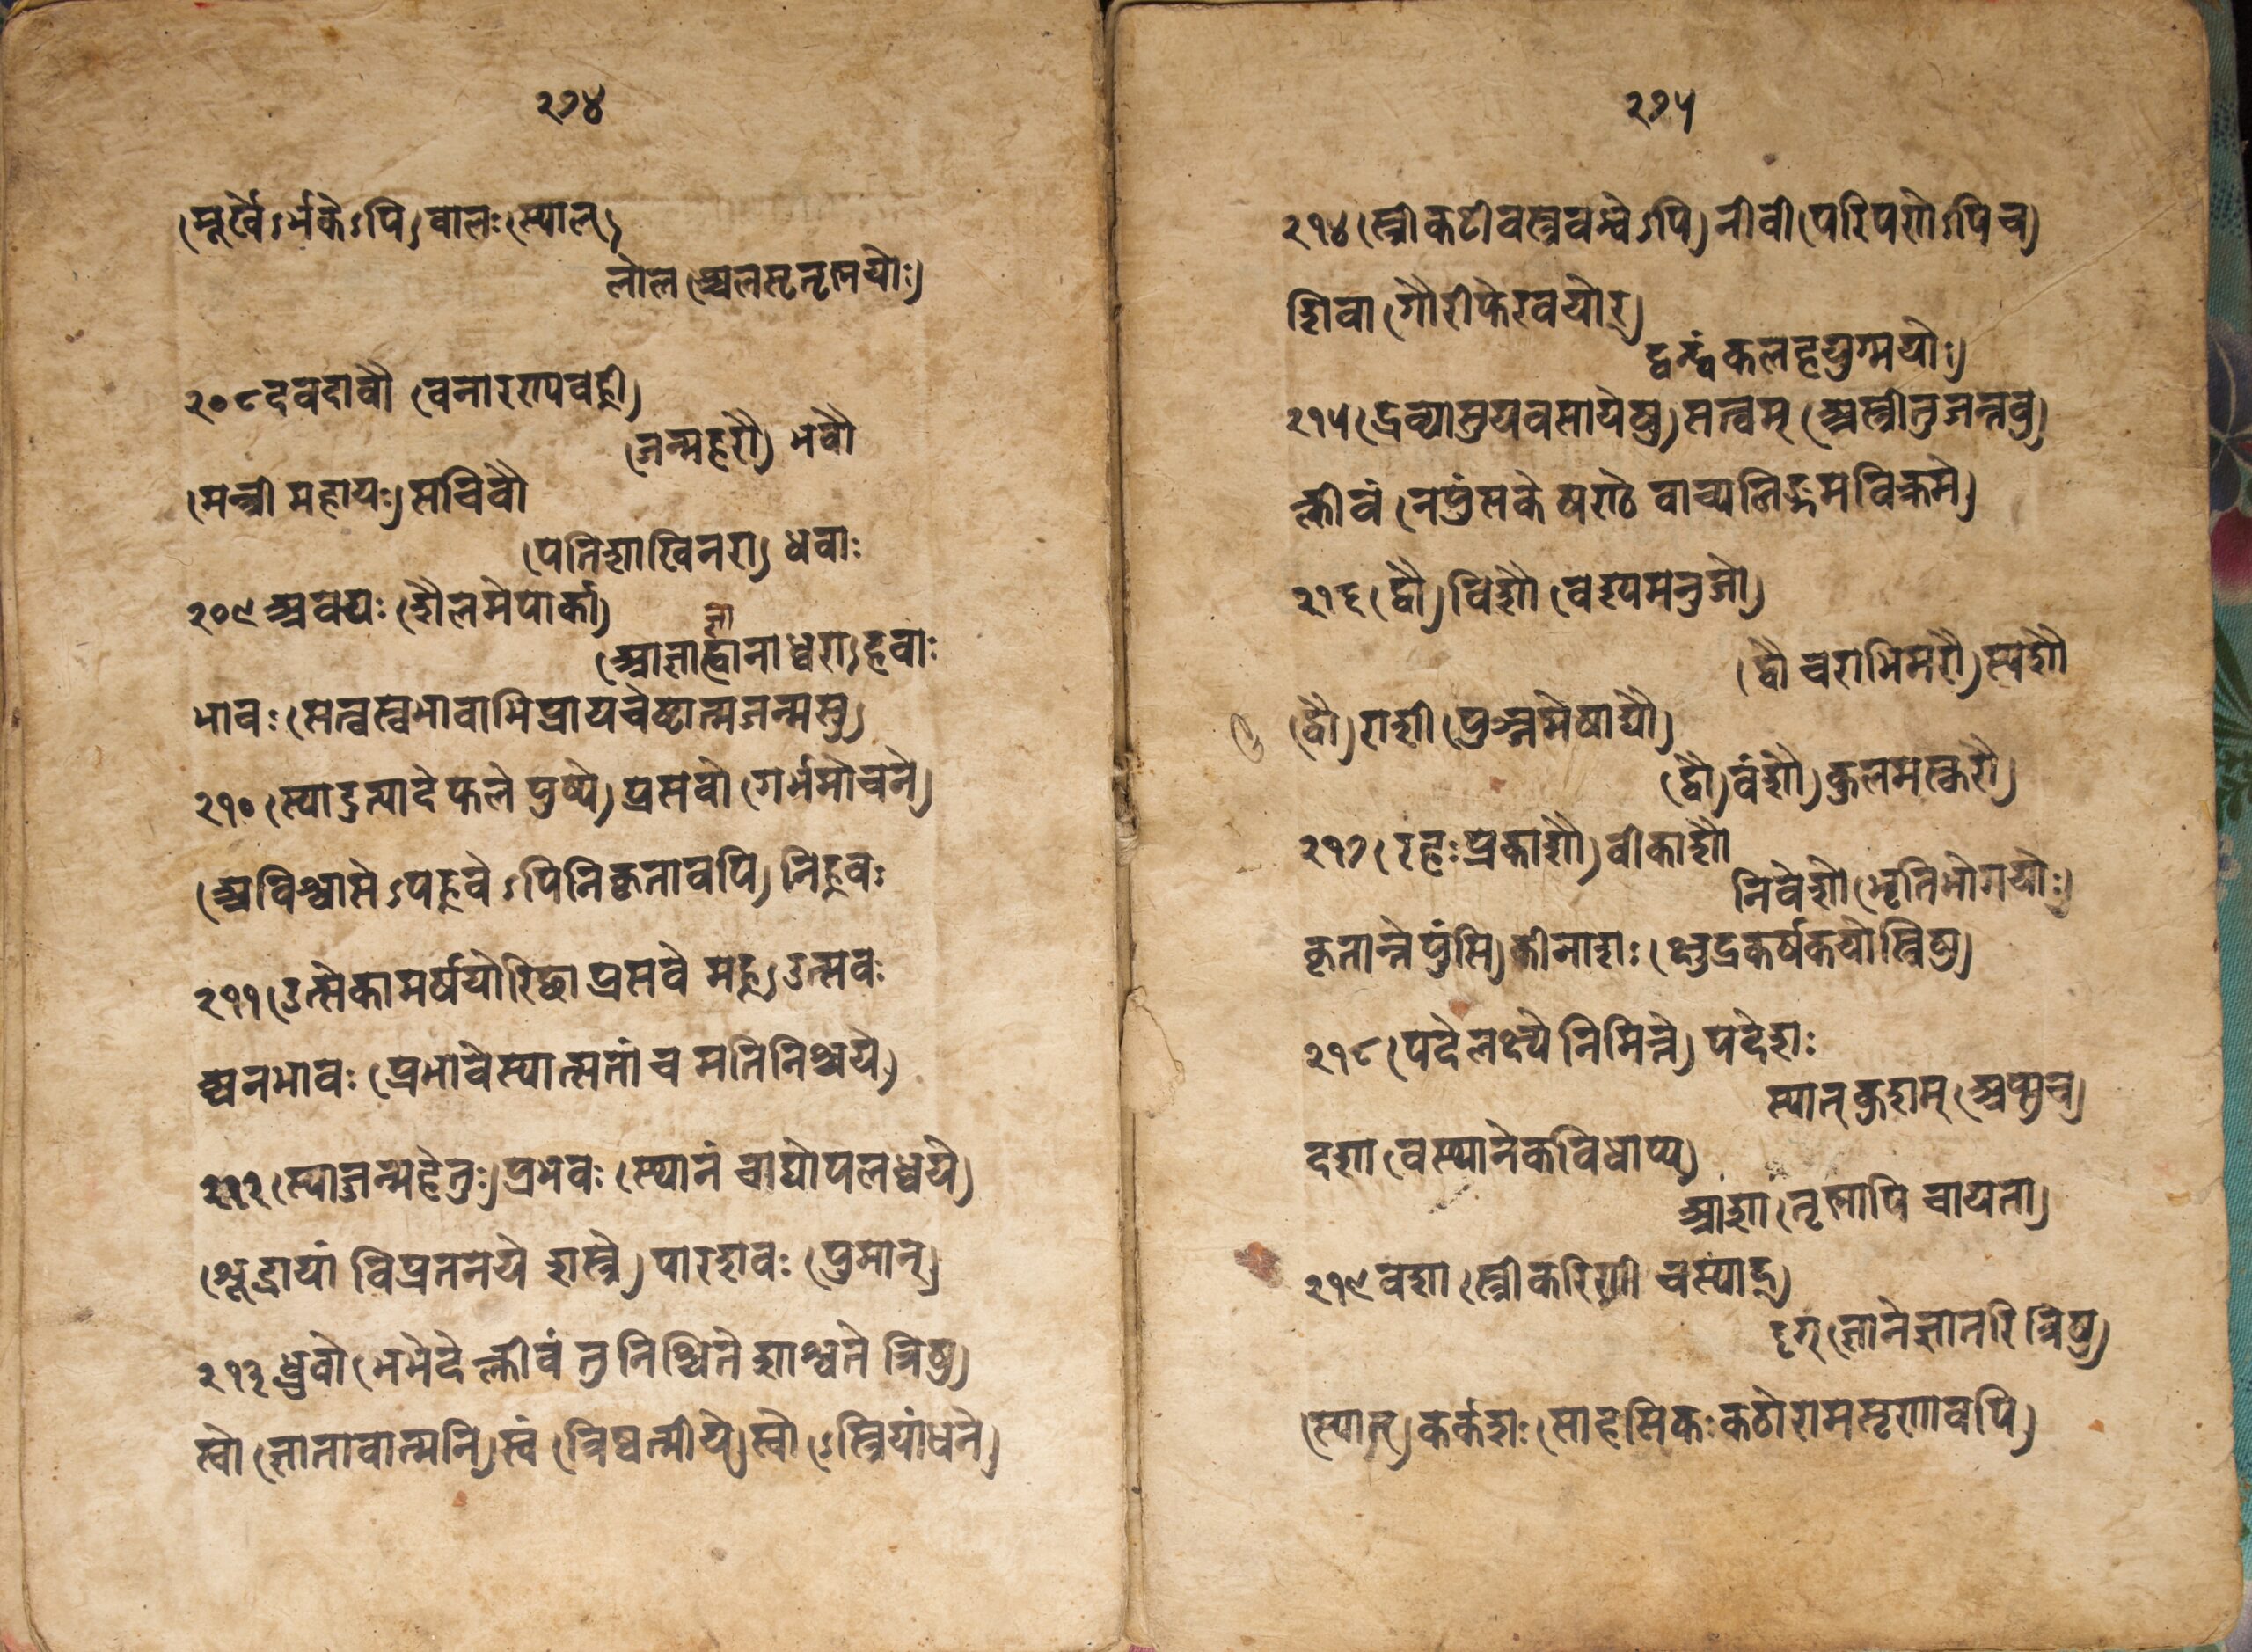 २७४
(मूर्खेऽर्भकेऽपि) वालः स्याल्
लोल (श्चलसतृतृष्णयोः)
२०८ दवदावौ (वनारण्यवह्नी)
(जन्महरौ) भवौ
(मन्त्री सहायः) सचिवौ
(पतिशाखिनरा) धवाः
२०९ अवयः (शैलमेषार्का)
(आज्ञाह्वानाध्वरा) हवाः
भावः (सत्त्वस्वभावाभिप्रायचेष्टात्मजन्मसु)
२१० (स्यादुत्पादे फले पुष्पे) प्रसवो (गर्भमोचने)
(अविश्वासेऽपह्नवेऽपि निकृतावपि) निह्नवः
२११ (उत्सेकामर्षयोरिच्छाप्रसवे मह) उत्सवः
अनभावः (प्रभावे स्यात्सतां च मतिनिश्चये)
२१२ (स्याज्जन्महेतुः) प्रभवः (स्थानं चाद्योपलब्धये)
(शूद्रायां विप्रतनये शस्त्रे) पारशवः (पुमान्)
२१३ ध्रुवो (भभेदे क्लीवं तु निश्चिते शाश्वते त्रिषु)
स्वो (ज्ञातावात्मनि) स्वं (त्रिष्वत्मीये) स्वो (ऽस्त्रियां धने)
२७५
२१४ (स्त्रीकटीवस्त्रवन्धेऽपि) नीवी (परिपणेऽपि च)
शिवा (गौरीफेरवयोर्)
द्वन्द्वं (कलहयुग्मयोः)
२१५ (द्रव्यासुयवसायेषु) सत्वम् (अस्त्री तु जन्तवु)
क्लीवं (नपुंसके षण्ठे वाच्यलिङ्गमविक्रमे)
२१६ (द्वौ) विशौ (वैश्यमनुजो)
(द्वौ चराभिमरौ) स्पशौ
(द्वौ) राशी (पुञ्जमेषाद्यौ)
(द्वौ) वंशौ (कुलमस्करौ)
२१७ (रहः प्रकाशौ) वीकाशौ
निर्वेशो (भृतिभोगयोः)
(कृतान्ते पुंसि) कीनाशः (क्षुद्रकर्षकयोस्त्रिषु)
२१८ (पदे लक्ष्ये निमित्ते) पदेशः
स्यात् कुशम् (अप्सु च)
दशा (वस्थानेकविधाप्य)
आशा (तृष्णापि चायता)
२१९ वशा (स्त्री करिणी च स्याद्)
दृग् (ज्ञाने ज्ञातरि त्रिषु)
(स्यात्) कर्कशः (साहसिकः कठोरामसृणावपि)